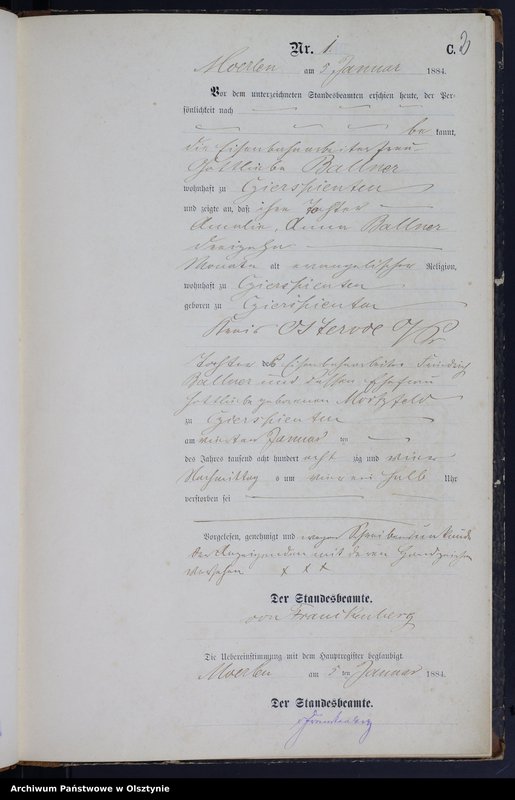 Nr. 1 C. 2
Moerlen am 5 Januar 1884.
Vor dem unterzeichneten Standesbeamten erschien heute, der Per-
sönlichkeit nach
be kannt,
die Eisenbahnarbeiterfrau
Gottliebe Ballner
wohnhaft zu Gierspienten
und zeigte an, daß ihre Tochter
Amalie, Anna Ballner
dreizehn
Monate alt evangelischer Religion,
wohnhaft zu Gierspienten
geboren zu Gierspienten
Kreis Osterode O/Pr
Tochter des Eisenbahnarbeiter Friedrich
Ballner und dessen Ehefrau
Gottliebe geborenen
zu Gierspienten
am vierten Januar ten
des Jahres tausend acht hundert acht zig und vier
Nachmittag s um vier ein halb Uhr
verstorben sei
Vorgelesen, genehmigt und wegen Schreibensunkunde
der Anzeigenden mit deren Handzeichen
versehen x x x
Der Standesbeamte.
von Franckenberg
Die Uebereinstimmung mit dem Hauptregister beglaubigt
Moerlen am 5 ten Januar 1884.
Der Standesbeamte.
v Franckenberg
Archiwum Państwowe w Olsztynie